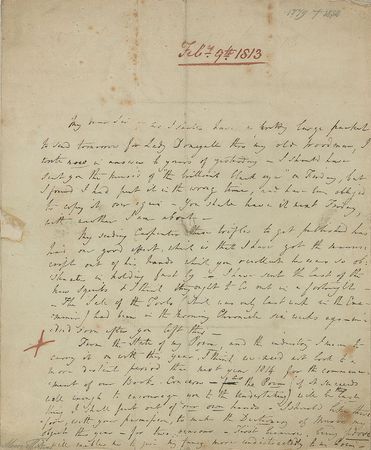 1779 + 1852
Feby 9th 1813
My dear Sir — as I shall have a monthly large packet
to send tomorrow for Lady Donegall thro my old Woodman, I
write now in answer to yours of yesterday — I should have
sent you the remains of the "brilliant black eye" on Friday, but
I found I had put it in the wrong time, and have been obliged
to copy it over again — You shall have it next Friday,
with another I am about —
My sending Carpenter these trifles to get published has
had one good effect, which is that I have got the manus-
cripts out of his hands which you recollect he was so ob-
stinate in holding fast by — I have sent the last of the
new Squibs & I think they ought to be out in a fortnight —
— The "Sale of the Tools" that was only last week in the Exa-
miner, I had been in the Morning Chronicle six weeks ago —
soon after you left this —
From the state of my Poem, and the industry I mean to
carry on with this year, I think we need not look to a
more distant period than next year 1814 for the commence-
ment of our Book-Concern — for the Poem (if it succeeds
well enough to encourage you to the undertaking) will be the last
thing I shall put out of our own hands — I should like there-
fore, with your permission, to make the Dictionary of Music my
this year — for two reasons — first because,
will enable me to give my fancy more undistractedly to